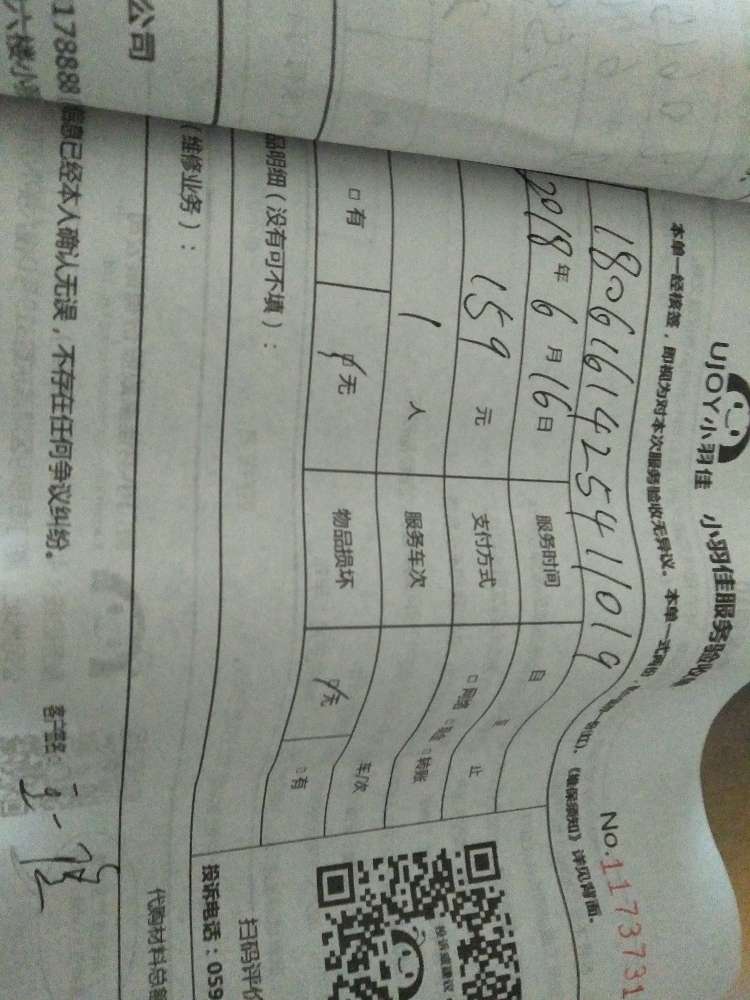 UJOY小羽佳 小羽佳服务验收
No.1173731
本单一经核签，即视为对本次服务验收无异议。本单一式两份，
《维保须知》详见背面。
1806161425411019
2018年6月16日 服务时间 日 至 止
159 元 支付方式 □网络 □现金 □转账
1 人 服务车次 车/次
□有 □无 物品损坏 □无 □有
品明细（没有可不填）：
扫码评价
投诉电话：059
（维修业务）：
代购材料总额
信息已经本人确认无误，不存在任何争议纠纷。 客户签名：
公司
178888
六楼小